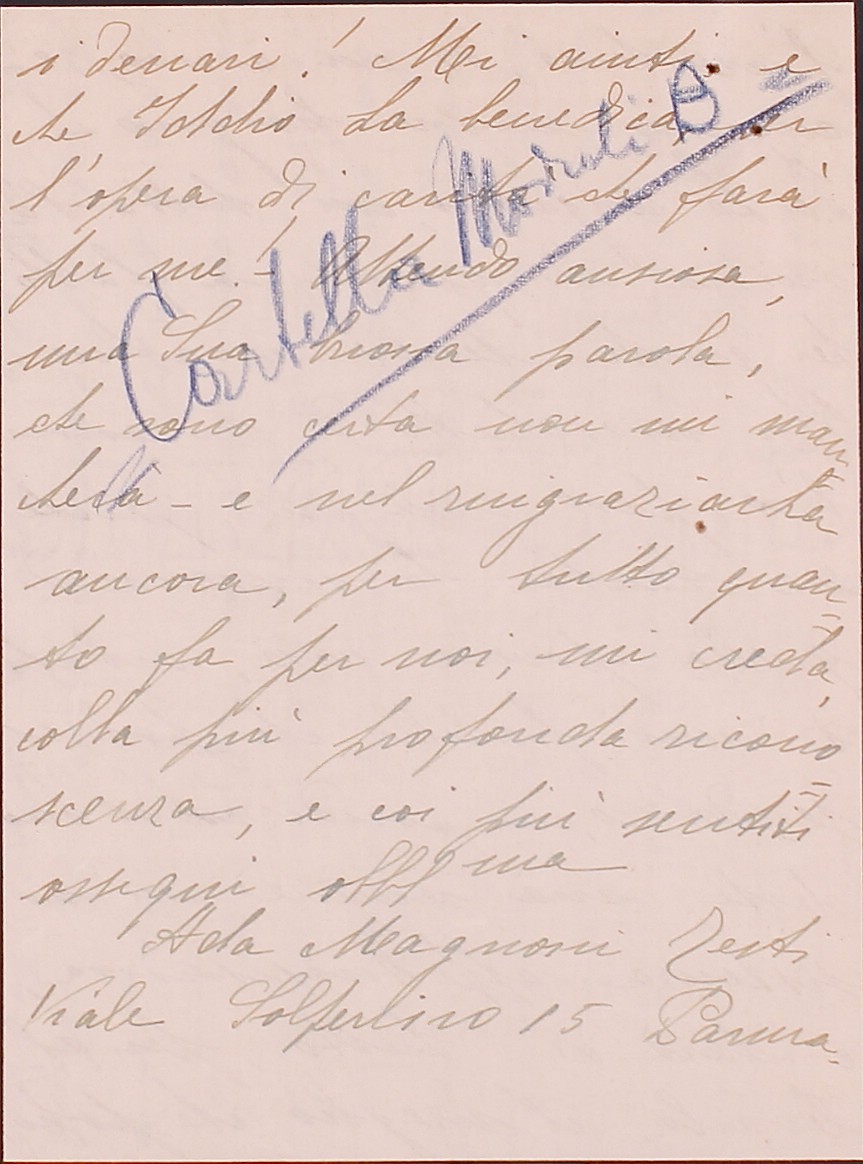 i denari! Mi aiuti e
che Iddio La benedica per
l'opera di carità che farà
per me! - Attendo ansiosa,
una Sua buona parola,
che sono certa non mi man
cherà - e nel ringraziarLa
ancora, per tutto quan-
to fa per noi, mi creda,
colla più profonda ricono-
scenza, e coi più sentiti
ossequi obbl ma
Ada Magnoni Zesti
Viale Solferino 15 Parma.
Cartella Moduli B